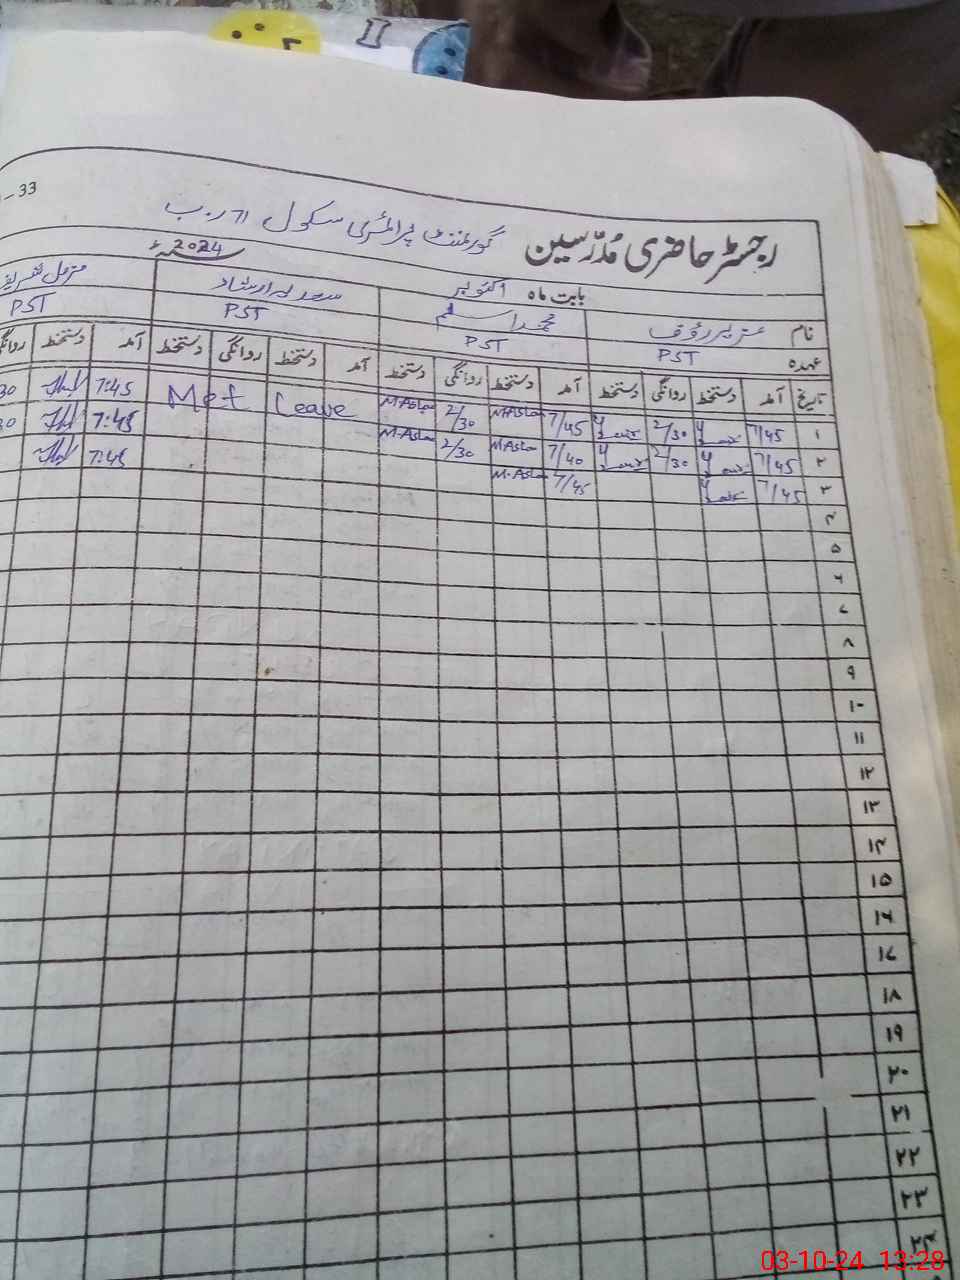 33
رجسٹر حاضری مدرسین گورنمنٹ پرائمری سکول ر.ب
بابت ماہ اکتوبر 2024
نام عزیر رؤف محمد اسلم
عہدہ PST PST PST PST
تاریخ آمد دستخط روانگی دستخط آمد دستخط روانگی دستخط آمد دستخط روانگی دستخط آمد دستخط روانگی
۱ 7/45 2/30 7/45 M.Aslam 2/30 M.Aslam Leave 7:45 30
۲ 7/45 2/30 7/40 M.Aslam 2/30 M.Aslam 7:45 30
۳ 7/45 7/45 M.Aslam 7:45
۴
۵
۶
۷
۸
۹
۱۰
۱۱
۱۲
۱۳
۱۴
۱۵
۱۶
۱۷
۱۸
۱۹
۲۰
۲۱
۲۲
۲۳
۲۴
03-10-24 13:28